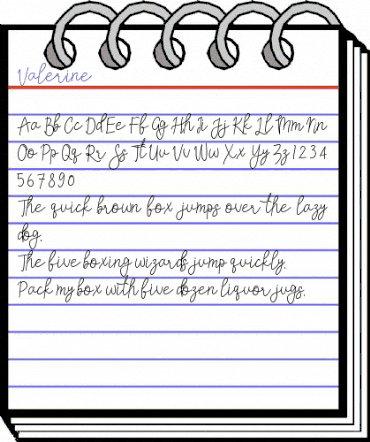 Valerine
Aa Bb Cc Dd Ee Ff Gg Hh Ii Jj Kk Ll Mm Nn
Oo Pp Qq Rr Ss Tt Uu Vv Ww Xx Yy Zz 1 2 3 4
5 6 7 8 9 0
The quick brown fox jumps over the lazy
dog.
The five boxing wizards jump quickly.
Pack my box with five dozen liquor jugs.